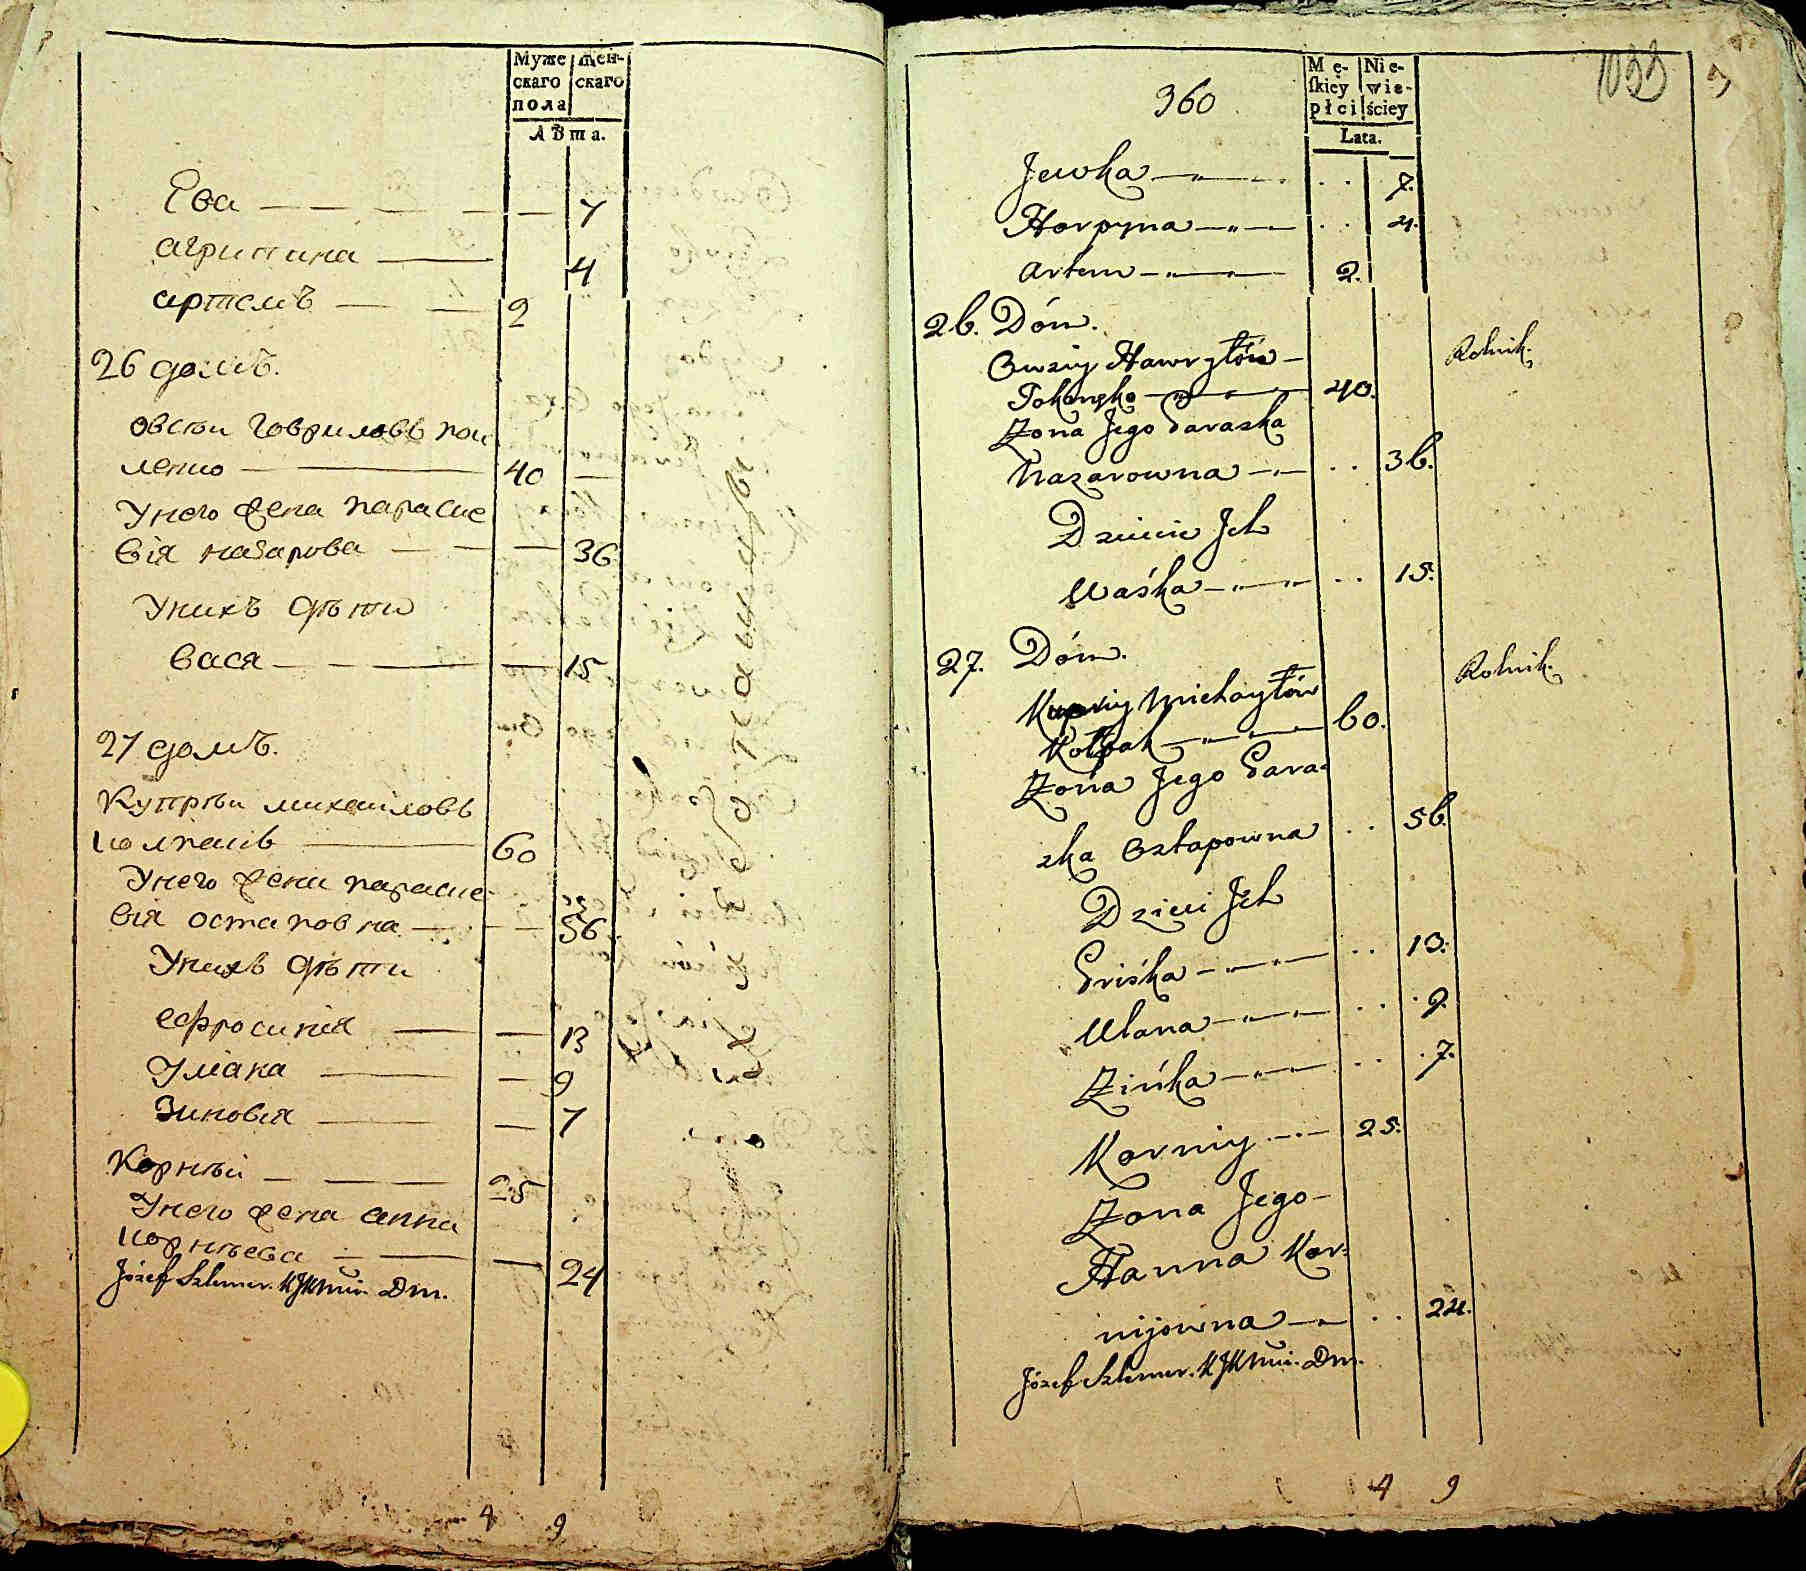 Муже
скаго
пола
Жен-
скаго
Лѣта.
Ева 7
агрипина 4
артемъ 2
26 домъ.
овсѣи говриловъ
40
Унего жена параске
вія назарова 36
Унихъ дѣти
вася 15
27 домъ.
Купрѣи михаиловъ
колпакъ 60
Унего жена параске
вія остаповна 56
Унихъ дѣти
ефросинія 13
Уляна 9
Зиновія 7
Корнѣй 25
Унего жена анна
корнѣева 24
Józef
4 9
1033
360
Mę-
ſkiey
płci
Nie-
wie-
ściey
Lata.
Jewka 7.
Horpyna 4.
Artem 2.
26. Dóm.
Owsiy Hawryłów Rolnik.
40.
Żona Jego Paraska
Nazarowna 36.
Dziecie Ich
Waśka 15.
27. Dóm.
Kupriy Michayłów Rolnik.
Kołpak 60.
Żona Jego Para-
ska Ostapowna 56.
Dzieci Ich
Priśka 13.
Ulana 9.
Zińka 7.
Korniy 25.
Żona Jego
Hanna Kor-
nijowna 24.
Józef
4 9